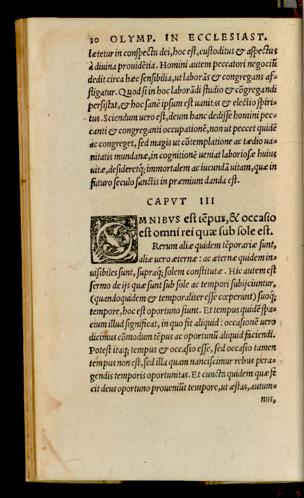 30 OLYMP. IN ECCLESIAST.
lætetur in conspectu dei, hoc est, custoditus & aspectus
à diuina prouidētia. Homini autem peccatori negociũ
dedit circa hæc sensibilia, ut laborās & congregans af-
fligatur. Quod si in hoc laborādi studio & cōgregandi
persistat, & hoc sanè ipsum est uanitas & electio spiri-
tus. Sciendum uero est, deum hanc dedisse homini pec-
canti & congreganti occupationē, non ut peccet quidē
ac congreget, sed magis ut cōtemplatione ac tædio ua-
nitatis mundanæ, in cognitionē ueniat laboriosæ huius
uitæ, desideretq́; immortalem ac iucundā uitam, quæ in
futuro seculo sanctis in præmium danda est.
CAPVT III
OMNIBVS est tēpus, & occasio
est omni rei quæ sub sole est.
Rerum aliæ quidem tēporariæ sunt,
aliæ uero æternæ: ac æternæ quidem in-
uisibiles sunt, supraq́; solem constitutæ. Hic autem est
sermo de ijs quæ sunt sub sole ac tempori subijciuntur,
(quandoquidem & temporaliter esse cœperunt) suoq́;
tempore, hoc est oportuno fiunt. Et tempus quidē spa-
cium illud significat, in quo fit aliquid: occasionē uero
dicimus cōmodum tēpus ac oportunũ aliquid faciendi.
Potest itaq́; tempus & occasio esse, sed occasio tamen
tempus non est, sed illa quam nanciscimur rebus pera-
gendis temporis oportunitas. Et cuncta quidem quæ fe
cit deus oportuno proueniũt tempore, ut æstas, autum-
nus,